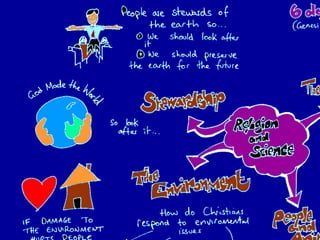 People are stewards of
the earth so...
① We should look after
it
② We should preserve
the earth for the future
6 d
(Genesi
God Made the World
Stewardship
so look
after it...
Religion
and
Science
The Environment
How do Christians
respond to environmental
issues
IF DAMAGE TO
THE ENVIRONMENT
HURTS PEOPLE
People
and